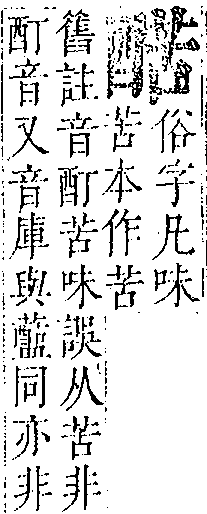 俗字凡味
苦本作苦
舊註音酊苦味誤从苦非
酊音又音庫與同亦非